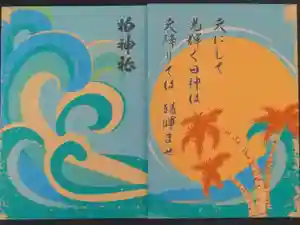 柏神社
天にして
光輝く日神は
天降りては 晴曄ませ